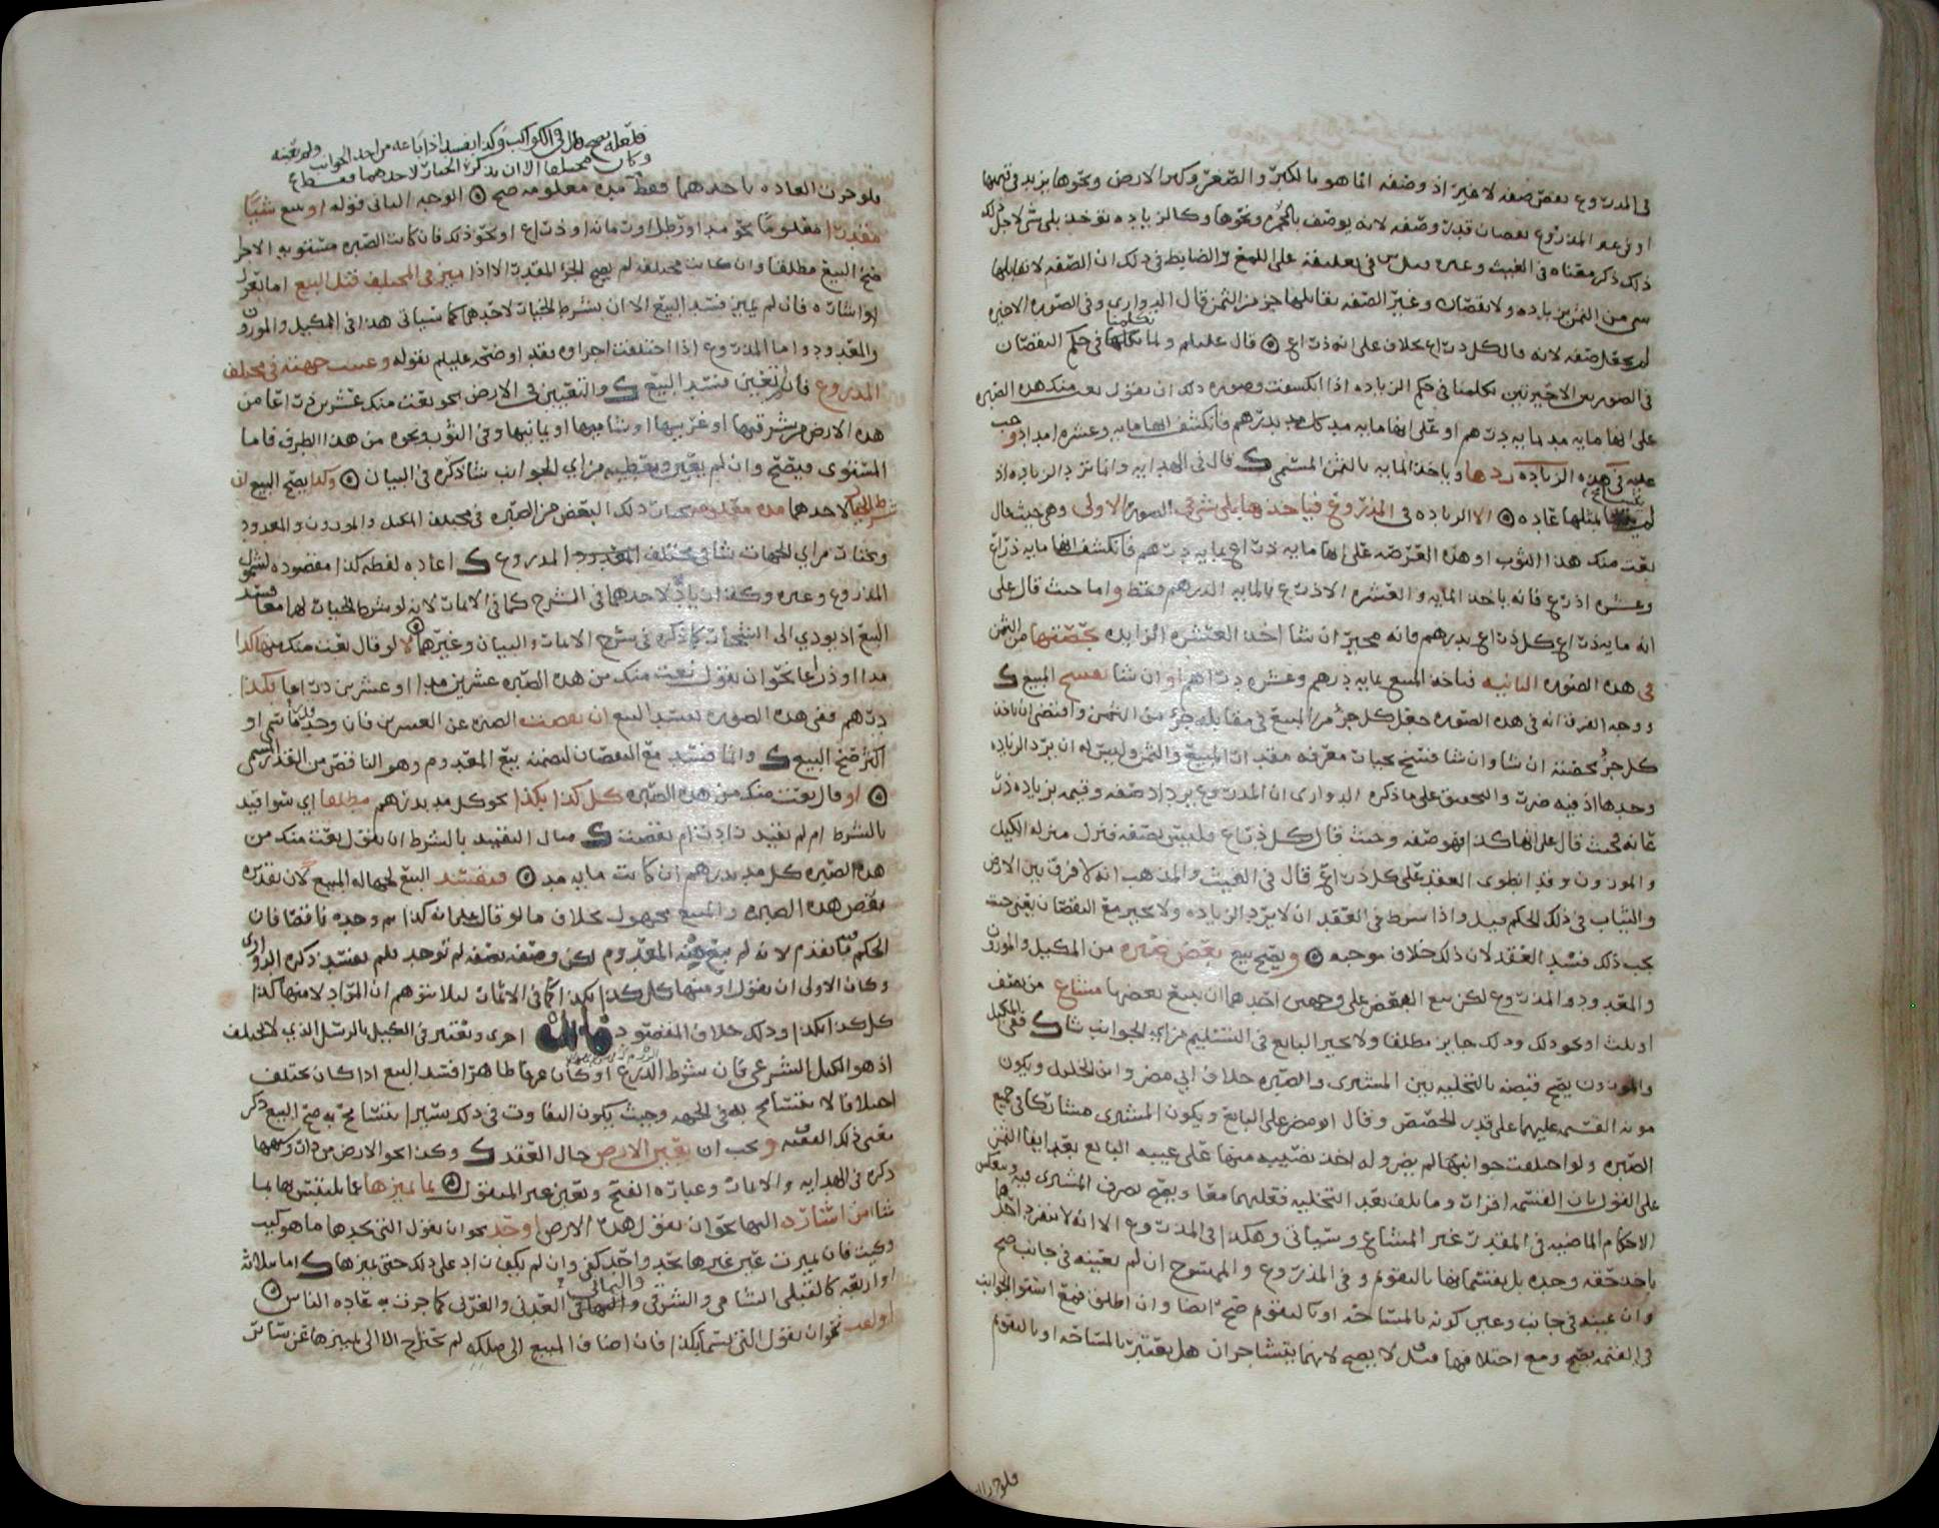 في المذروع نقص صفه لا غير اذ وصفه انما هو بالكبر والصغر وكبر الارض ونحوها يزيد في قيمتها
او في المذروع نقصان قدر وصفه لانه يوصف بالحمره ونحوها وكالزياده توخذ بلى شي لاجل ذلك
ذلك ذكر معناه في الغيث وغيره في تعليقه على اللمع والضابط في ذلك ان الصفه لا يقابلها
شي من الثمن زياده ولا نقصان وغير الصفه يقابلها جزؤ من الثمن قال الدواري وفي الصوره الاخيره
لم يجعل صفه لانه قال كل ذراع بخلاف على انه ذراع قال عليلم ولما تكلمنا في حكم النقصان
في الصورتين الاخيرتين تكلمنا في حكم الزياده اذا انكشفت وصوره ذلك ان يقول بعت منك هذه الصبره
على انها مايه مد بمايه درهم او على انها مايه مد كل مد بدرهم فانكشف انها مايه وعشره امداد وجب
عليه في هذه الزياده ردها وياخذ المايه بالثمن المسمى ك قال في الهدايه وانما ترد الزياده اذا
لم يتسامح بمثلها عاده الا الزياده في المذروع فياخذها بلى شي في الصوره الاولى وهي حيث قال
بعت منك هذا الثوب او هذه العرصه على انها مايه ذراع بمايه درهم فانكشف انها مايه ذراع
وعشره اذرع فانه ياخذ المايه والعشره الاذرع بالمايه الدرهم فقط واما حيث قال على
انه مايه ذراع كل ذراع بدرهم فانه مخير ان شا اخذ العشره الزايده بحصتها من الثمن
في هذه الصوره الثانيه فياخذ المبيع بمايه درهم وعشره دراهم او ان شا نفسخ المبيع ك
ووجه الفرق انه في هذه الصوره جعل كل جزؤ من المبيع في مقابله جزؤ من الثمن واقتضى ان ياخذ
كل جزؤ بحصته ان شا وان شا فسخ بخيار معرفه مقدار المبيع والثمن وليس له ان يرد الزياده
وحدها اذ فيه ضرر والتحقيق على ما ذكره الدواري ان المذروع يزداد صفه وقيمه بزياده ذرا
عانه فحيث قال على انها كذا فهو صفه وحيث قال كل ذراع فليس بصفه فنزل منزله المكيل
والموزون وقد انطوى العقد على كل ذراع قال في الغيث والمذهب انه لا فرق بين الارض
والثياب في ذلك الحكم قيل واذا شرط في العقد ان لا يرد الزياده ولا يخير مع النقصان يعني حيث
يجب ذلك فسد العقد لان ذلك خلاف موجبه ويصح بيع بعض صبره من المكيل والموزون
والمعدود والمذروع لكن بيع البعض على وجهين احدهما ان يبيع بعضها مشاع من نصف
او ثلث او نحو ذلك وذلك جايز مطلقا ولا يخير البايع في التسليم من اي الجوانب شا ك ففي المكيل
والموزون يصح قبضه بالتخليه بين المشتري والصبره خلاف ابي مضر وابن الخليل ويكون
مونه القسمه عليهما على قدر الحصص وقال ابو مضر على البايع ويكون المشتري مشاركا في جميع
الصبره ولو اختلفت جوانبها لم يضر وله اخذ نصيبه منها على غيبه البايع بعد ايفا الثمن
على القول بان القسمه افراز وما تلف بعد التخليه فعليهما معا ويصح تصرف المشتري فيه وتنعكس
الاحكام الماضيه في المقدر غير المشاع وسياتي وهكذا في المذروع الا انه لا ينفرد احدهما
باخذ حقه وحده بل يقتسمانها بالتقويم وفي المذروع والممسوح ان لم يعينه في جانب صح
وان عينه في جانب وعين كونه بالمساحه او بالتقويم صح ايضا وان اطلق فمع استوا الجوانب
في القيمه يصح ومع اختلافها قيل لا يصح لانهما يتشاجران هل يعتبر بالمساحه او بالتقويم
فلو جرت
فلعله يصح قال في الكواكب وكذا يفسد اذا باعه من احد الجوانب ولم يعينه
وكان مختلفا الا ان يذكر الخيار لاحدهما فقط ع
فلو جرت العاده باحدهما فقط مده معلومه صح الوجه الثاني قوله او بيع شيئا
مقدرا معلوما نحو مد او رطل او رمانه او ذراع او نحو ذلك فان كانت الصبره مستويه الاجزا
صح البيع مطلقا وان كانت مختلفه لم يصح الجزؤ المقدر الا اذا ميز في المختلف قبل البيع اما بعزل
او اشاره فان لم يميز فسد البيع الا ان يشرط الخيار لاحدهما كما سياتي هذا في المكيل والموزون
والمعدود واما المذروع اذا اختلفت اجزاوه فقد اوضحه عليلم بقوله وعينت جهته في مختلف
المذروع فان لم تعين فسد البيع ك والتعيين في الارض نحو بعت منك عشرين ذراعا من
هذه الارض من شرقيها او غربيها او شاميها او يمانيها وفي الثوب ونحوه من هذا الطرف فاما
المستوي فيصح وان لم يعين ويعطيه من اي الجوانب شا ذكره في البيان وكذا يصح البيع ان
شرط الخيار لاحدهما مده معلومه يختار ذلك البعض من الصبره في مختلف المكيل والموزون والمعدود
ويختار من اي الجهات شا في مختلف المذروع ك اعاده لفظه كذا مقصوده لشمول
المذروع وغيره وكذا زياده لاحدهما في الشرح كما في الاثمار لانه لو شرط الخيار لهما معا فسد
البيع اذ يودي الى التشاجر كما ذكره في شرح الاثمار والبيان وغيرهما لا لو قال بعت منك منها كذا
مدا او ذراعا نحو ان يقول بعت منك من هذه الصبره عشرين مدا او عشرين ذراعا بكذا
درهم ففي هذه الصوره يفسد البيع ان نقصت الصبره عن العشرين فان وجد قدر ما سمى او
اكثر صح البيع ك وانما فسد مع النقصان لتضمنه بيع المعدوم وهو الناقص من القدر المسمى
او قال بعت منك من هذه الصبره كل كذا بكذا نحو كل مد بدرهم مطلقا اي سوا قيد
بالشرط ام لم يقيد زادت ام نقصت ك مثال التقييد بالشرط ان يقول بعت منك من
هذه الصبره كل مد بدرهم ان كانت مايه مد فيفسد البيع لجهاله المبيع لان تقديره
بعض هذه الصبره والمبيع مجهول بخلاف ما لو قال على انه كذا ثم وجده ناقصا فان
الحكم فيه ما تقدم لانه لم يبع منه المعدوم لكن وصفه بصفه لم توجد فلم يفسد ذكره الدواري
وكان الاولى ان يقول او منها كل كذا بكذا كما في الاثمار ليلا يتوهم ان المراد لا منها كذا
كل كذا بكذا وذلك خلاف المقصود فايده اخرى ويعتبر في الكيل بالرسل الذي لا يختلف
اذ هو الكيل الشرعي فان شرط الذرع او كان عرفا ظاهرا فسد البيع اذا كان يختلف
اختلافا لا يتسامح به في الجهه وحيث يكون التفاوت في ذلك يسيرا يتسامح به صح البيع ذكر
معنى ذلك الفقيه ويجب ان تعين الارض حال العقد ك وكذا نحو الارض من دار وسهمها
ذكره في الهدايه والاثمار وعباره الفتح وتعين غير المنقول بما يميزها عما يلتبس بها بما
شا من اشاره اليها نحو ان يقول هذه الارض او حد نحو ان يقول التي يحدها ما هو كيت
وكيت فان تميزت عن غيرها بحد واحد كفى وان لم يكف زاد على ذلك حتى يميزها ك اما بثلاثه
او اربعه كالقبلي الشامي والشرقي والشمالي في العدني والغربي كما جرت به عاده الناس
او لقب نحو ان يقول التي تسما بكذا فان اضاف المبيع الى ملكه لم يحتاج الا الى تمييزها عن ساير